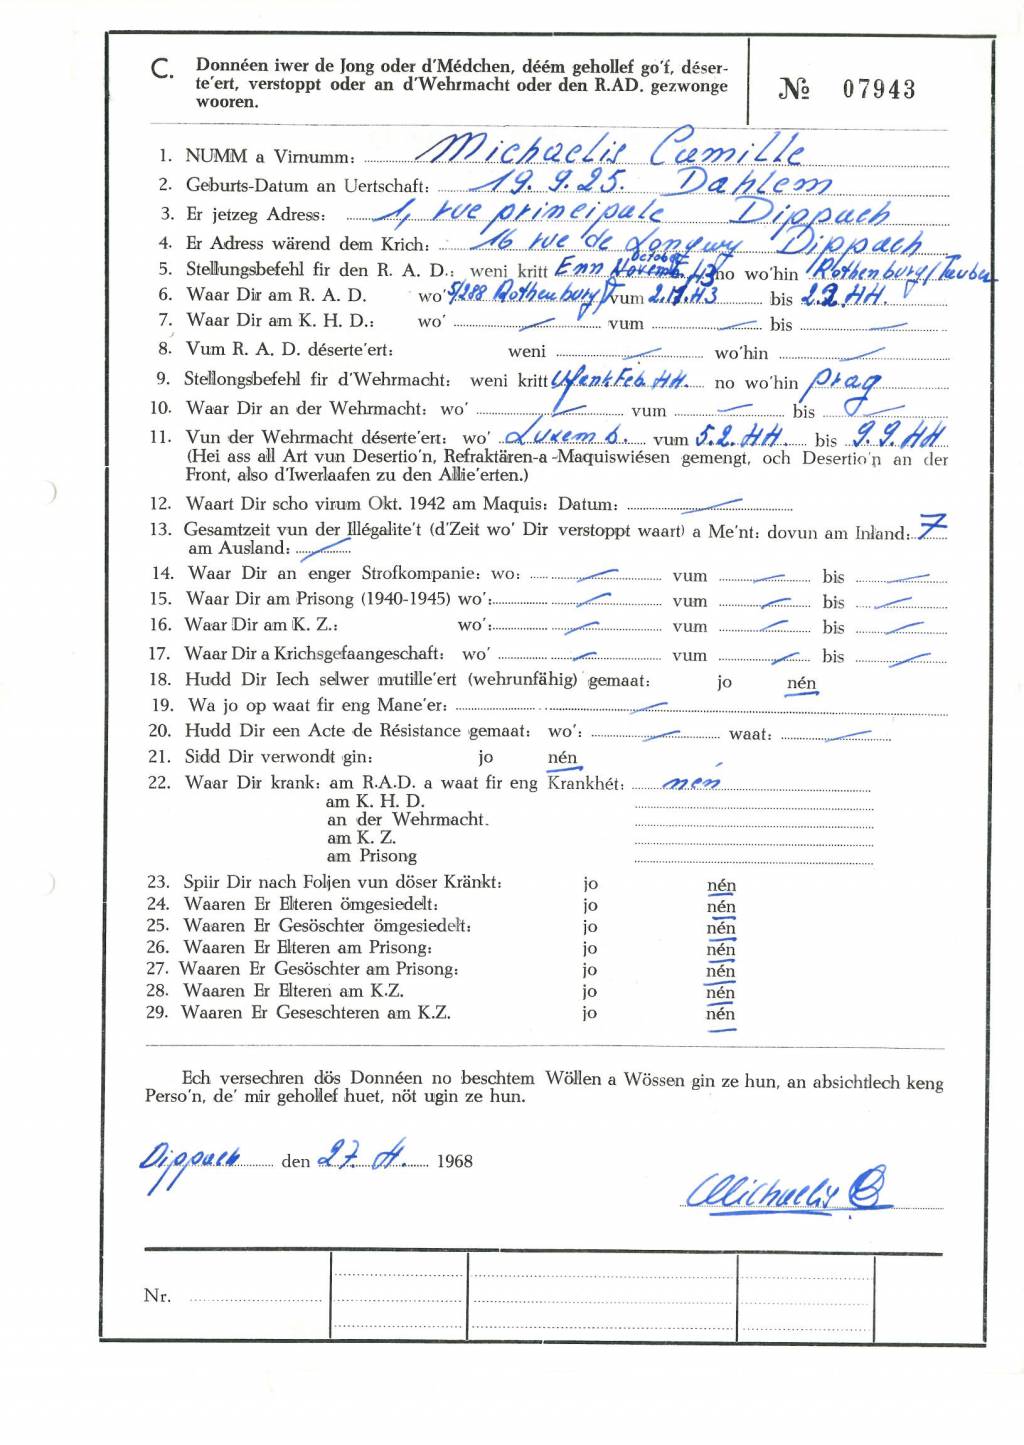 C. Donnéen iwer de Jong oder d'Médchen, déém gehollef go'f, déser-
te'ert, verstoppt oder an d'Wehrmacht oder den R.AD. gezwonge
wooren.
№ 07943
1. NUMM a Virnumm: Michaelis Camille
2. Geburts-Datum an Uertschaft: 19.9.25. Dahlem
3. Er jetzeg Adress: 1, rue principale Dippach
4. Er Adress wärend dem Krich: 16 rue de Longwy Dippach
5. Stellungsbefehl fir den R. A. D.: weni kritt Enn October 43 no wo'hin Rothenburg/Tauber
6. Waar Dir am R. A. D. wo' 5/288 Rothenburg/T vum 2.11.43 bis 2.2.44.
7. Waar Dir am K. H. D.: wo' — vum — bis —
8. Vum R. A. D. déserte'ert: weni — wo'hin —
9. Stellongsbefehl fir d'Wehrmacht: weni kritt Ufank Feb. 44. no wo'hin Prag
10. Waar Dir an der Wehrmacht: wo' — vum — bis —
11. Vun der Wehrmacht déserte'ert: wo' Luxemb. vum 5.2.44. bis 9.9.44
(Hei ass all Art vun Desertio'n, Refraktären-a-Maquiswiésen gemengt, och Desertio'n an der
Front, also d'Iwerlaafen zu den Allie'erten.)
12. Waart Dir scho virum Okt. 1942 am Maquis: Datum: —
13. Gesamtzeit vun der Illégalite't (d'Zeit wo' Dir verstoppt waart) a Me'nt: dovun am Inland: 7
am Ausland: —
14. Waar Dir an enger Strofkompanie: wo: — vum — bis —
15. Waar Dir am Prisong (1940-1945) wo': — vum — bis —
16. Waar Dir am K. Z.: wo': — vum — bis —
17. Waar Dir a Krichsgefaangeschaft: wo' — vum — bis —
18. Hudd Dir Iech selwer mutille'ert (wehrunfähig) gemaat: jo nén
19. Wa jo op waat fir eng Mane'er: —
20. Hudd Dir een Acte de Résistance gemaat: wo': — waat: —
21. Sidd Dir verwondt gin: jo nén
22. Waar Dir krank: am R.A.D. a waat fir eng Krankhét: nén
am K. H. D.
an der Wehrmacht.
am K. Z.
am Prisong
23. Spiir Dir nach Foljen vun döser Kränkt: jo nén
24. Waaren Er Elteren ömgesiedelt: jo nén
25. Waaren Er Gesöschter ömgesiedelt: jo nén
26. Waaren Er Elteren am Prisong: jo nén
27. Waaren Er Gesöschter am Prisong: jo nén
28. Waaren Er Elteren am K.Z. jo nén
29. Waaren Er Geseschteren am K.Z. jo nén
Ech versechren dös Donnéen no beschtem Wöllen a Wössen gin ze hun, an absichtlech keng
Perso'n, de' mir gehollef huet, nöt ugin ze hun.
Dippach den 27. 4. 1968
Michaelis C
Nr.